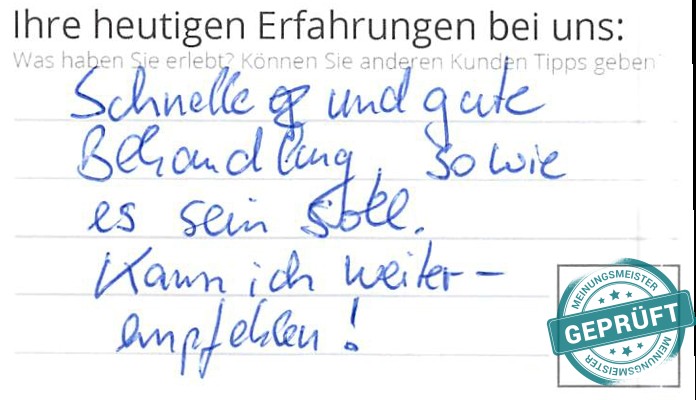 Ihre heutigen Erfahrungen bei uns:
Was haben Sie erlebt? Können Sie anderen Kunden Tipps geben
Schnelle und gute
Behandlung, so wie
es sein soll.
Kann ich weiter-
empfehlen!
MEINUNGSMEISTER
GEPRÜFT
MEINUNGSMEISTER